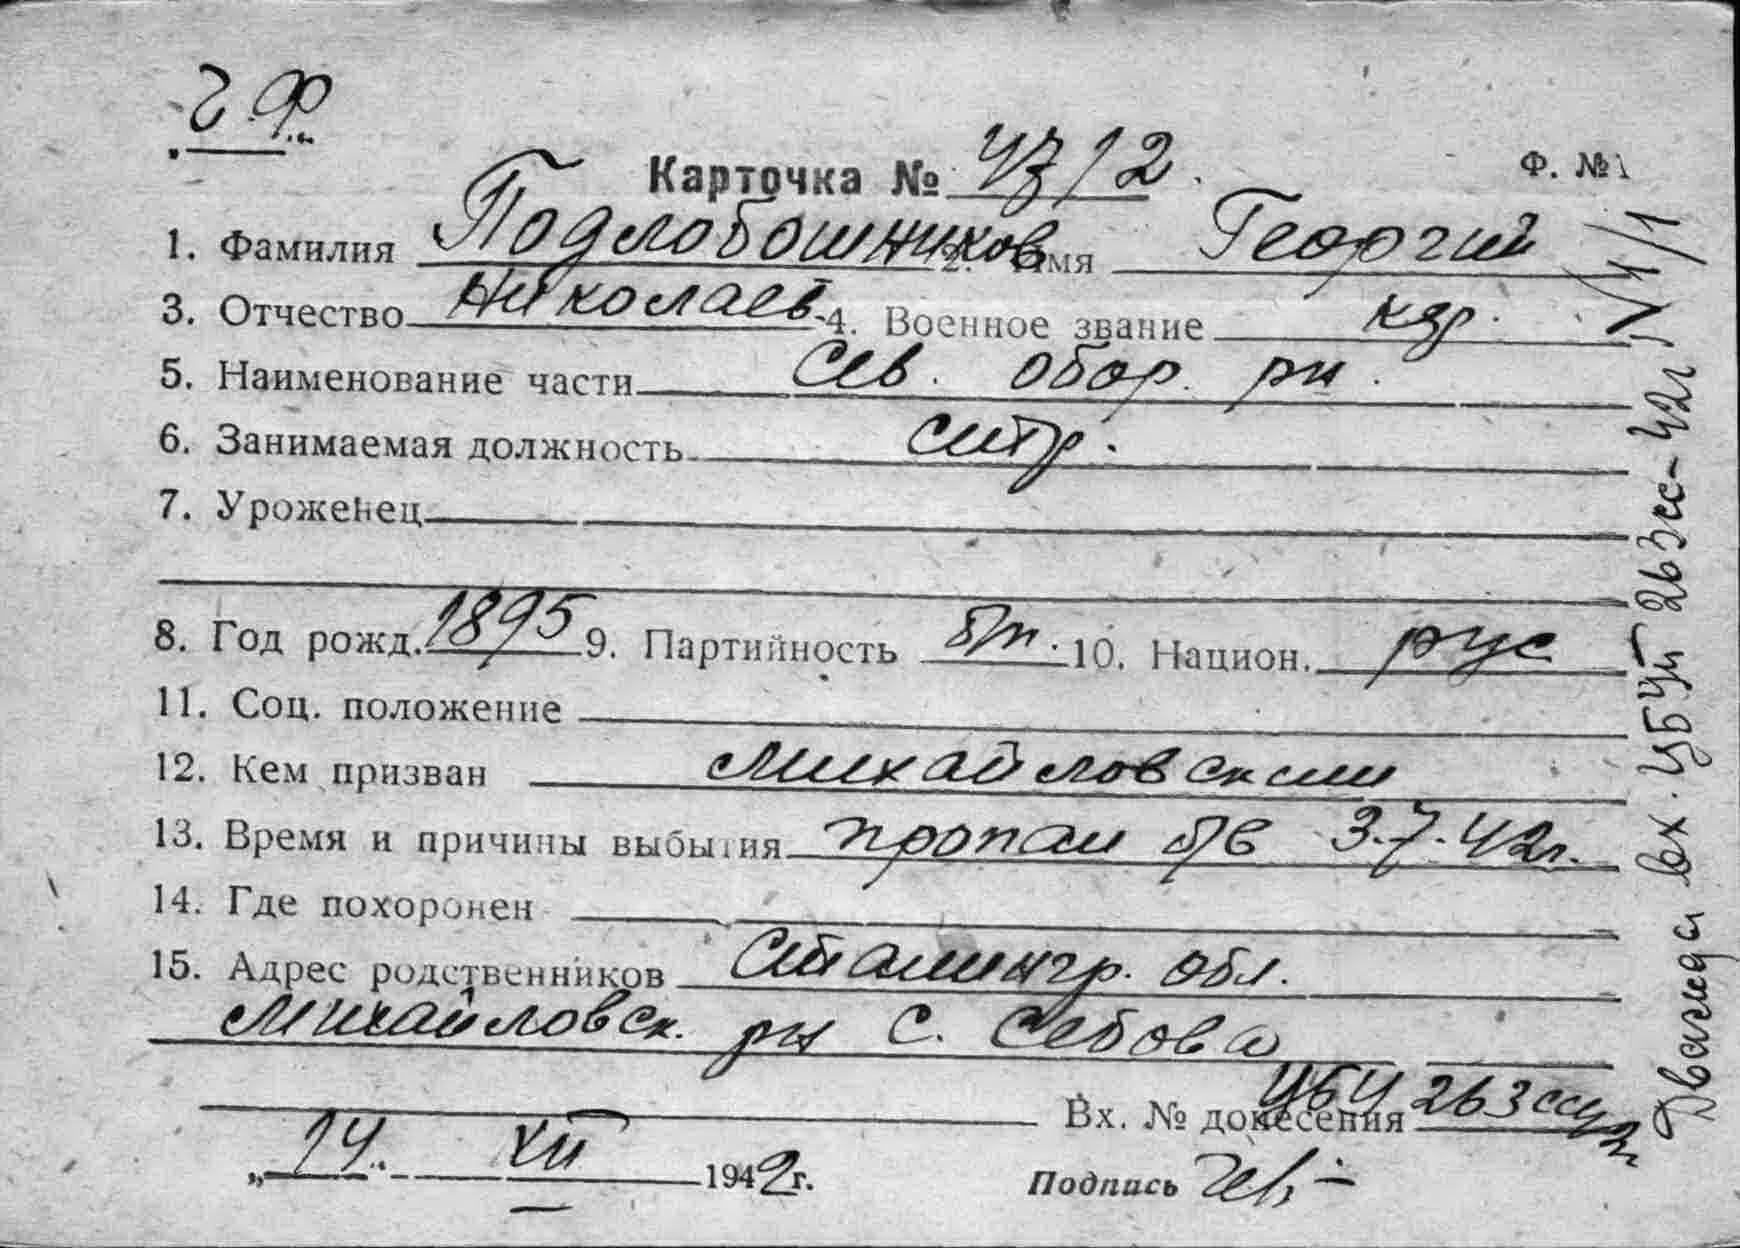 Ч Ф
Карточка № 43/2
Ф. №1
1. Фамилия Подлобошников 2. Имя Георгий
3. Отчество Николаев. 4. Военное звание кдр.
5. Наименование части Сев. обор. рн.
6. Занимаемая должность
7. Уроженец
8. Год рожд. 1895 9. Партийность б/п. 10. Национ. рус
11. Соц. положение
12. Кем призван Михайловским
13. Время и причины выбытия пропал б/в 3.7.42г.
14. Где похоронен
15. Адрес родственников Сталингр. обл.
Михайловск. рн с. Себова
Вх. № донесения ЦБУ 263сс 42г
„14" XII 1942г. Подпись
Дважды вх. 263сс-42г